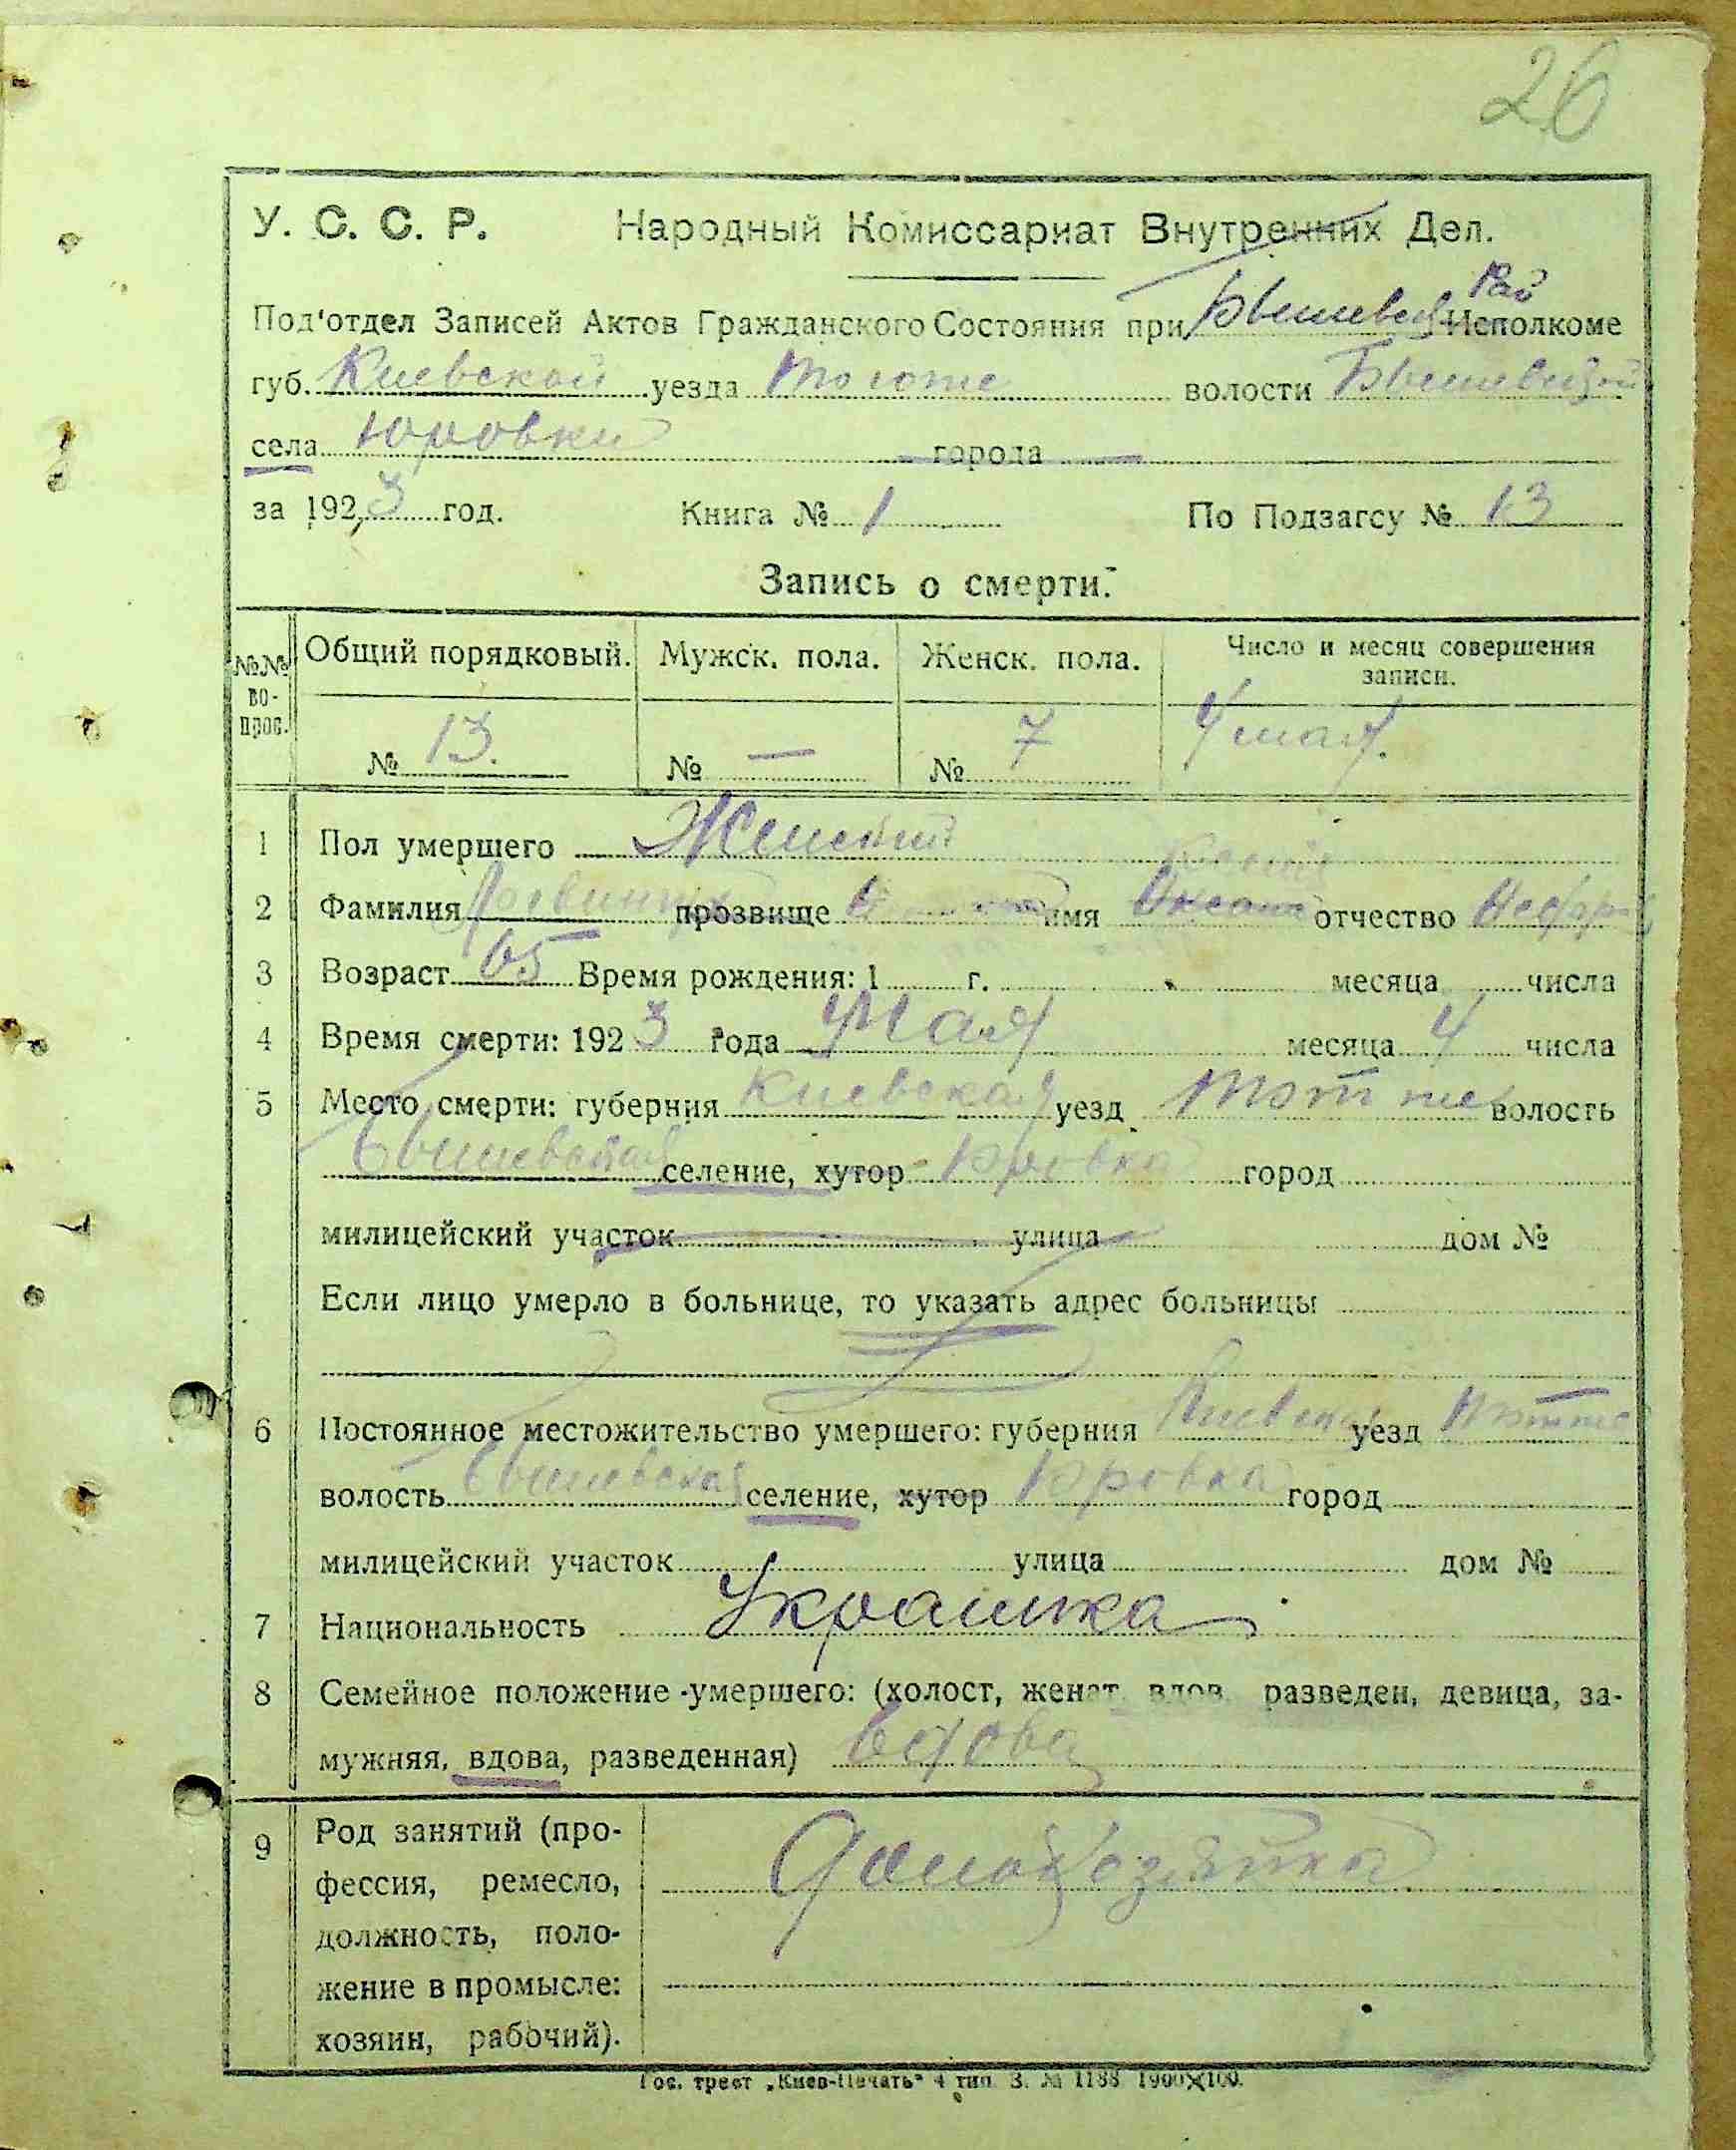 26
У. С. С. Р. Народный Комиссариат Внутренних Дел.
Рай
Под'отдел Записей Актов Гражданского Состояния при Исполкоме
губ. Киевской уезда волости
села Юровки города —
за 1923 год. Книга № 1 По Подзагсу № 13
Запись о смерти.
№№ вопрос. Общий порядковый. Мужск. пола. Женск. пола. Число и месяц совершения записи.
№ 13. № — № 7 4 мая.
1 Пол умершего Женский
2 Фамилия прозвище имя отчество
3 Возраст 65 Время рождения: 1 г. месяца числа
4 Время смерти: 1923 года Мая месяца 4 числа
5 Место смерти: губерния Киевская уезд волость
Бышевская селение, хутор Юровка город
милицейский участок улица дом №
Если лицо умерло в больнице, то указать адрес больницы
6 Постоянное местожительство умершего: губерния Киевская уезд
волость Бышевская селение, хутор Юровка город
милицейский участок улица дом №
7 Национальность Украинка
8 Семейное положение умершего: (холост, женат, вдов, разведен, девица, за-
мужняя, вдова, разведенная) вдова
9 Род занятий (про-
фессия, ремесло, домохозяйка
должность, поло-
жение в промысле:
хозяин, рабочий).
Гос. трест „Киев-Печать“ 4 тип. З. № 1188